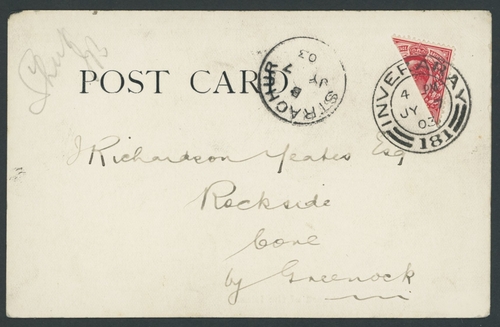 POST CARD
STRACHUR
B
7
JY
03
INVERARAY
4
JY
03
181
J Richardson Yeates Esq
Rockside
Cove
by Greenock